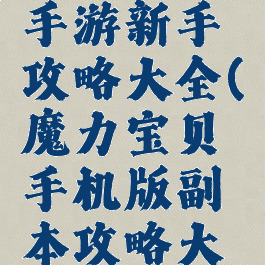 手游新手
攻略大全(
魔力宝贝
手机版副
本攻略大